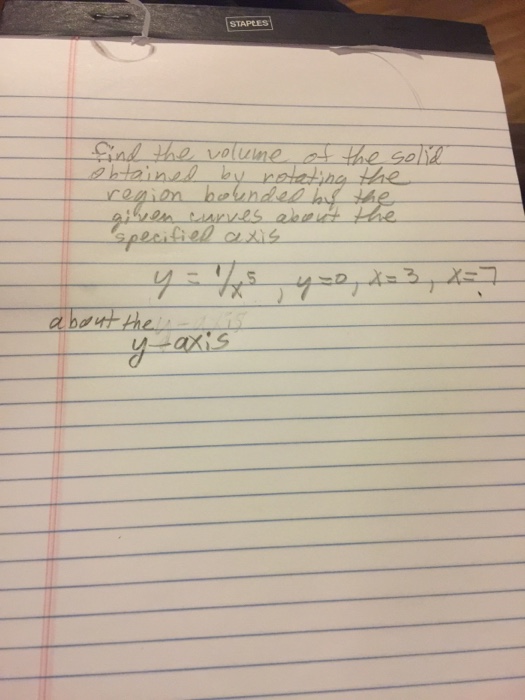 STAPLES
find the volume of the solid
obtained by rotating the
region bounded by the
given curves about the
specified axis
y = 1/x⁵, y=0, x=3, x=7
about the y-axis
y-axis